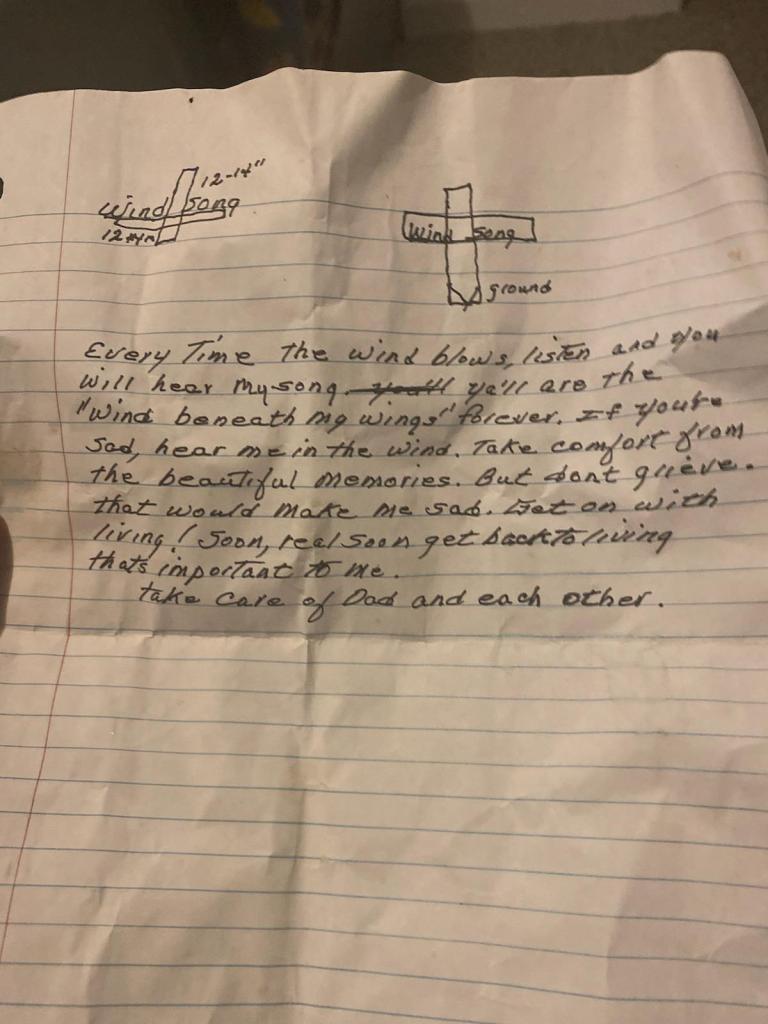 12-14"
Wind Song
12
Wind Song
ground
Every Time the wind blows, listen and you
will hear my song. ya'll are the
"Wind beneath my wings" forever. If you're
Sad, hear me in the wind. Take comfort from
the beautiful memories. But dont grieve.
that would make me sad. Get on with
living! Soon, real soon get back to living
thats important to me.
take care of Dad and each other.